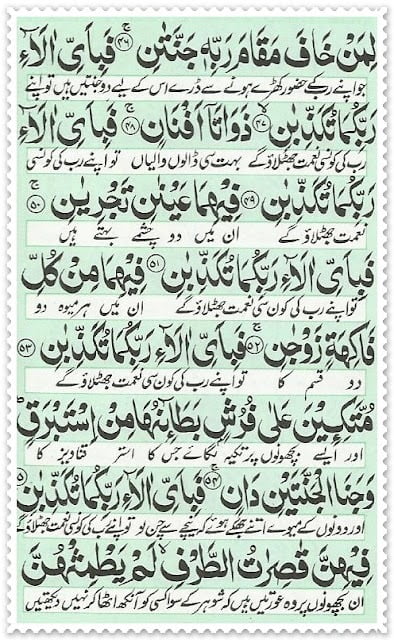 لِمَنْ خَافَ مَقَامَ رَبِّهٖ جَنَّتٰنِ ﴿۴۶﴾ فَبِاَيِّ اٰلَآءِ
جو اپنے رب کے حضور کھڑے ہونے سے ڈرے اس کے لیے دو جنتیں ہیں تو اپنے
رَبِّكُمَا تُكَذِّبٰنِ ﴿۴۷﴾ ذَوَاتَاۤ اَفْنَانٍ ﴿۴۸﴾ فَبِاَيِّ اٰلَآءِ
رب کی کونسی نعمت جھٹلاؤ گے بہت سی ڈالوں والیاں تو اپنے رب کی کونسی
رَبِّكُمَا تُكَذِّبٰنِ ﴿۴۹﴾ فِيْهِمَا عَيْنٰنِ تَجْرِيٰنِ ﴿۵۰﴾
نعمت جھٹلاؤ گے ان میں دو چشمے بہتے ہیں
فَبِاَيِّ اٰلَآءِ رَبِّكُمَا تُكَذِّبٰنِ ﴿۵۱﴾ فِيْهِمَا مِنْ كُلِّ
تو اپنے رب کی کون سی نعمت جھٹلاؤ گے ان میں ہر میوہ دو
فَاكِهَةٍ زَوْجٰنِ ﴿۵۲﴾ فَبِاَيِّ اٰلَآءِ رَبِّكُمَا تُكَذِّبٰنِ ﴿۵۳﴾
دو قسم کا تو اپنے رب کی کون سی نعمت جھٹلاؤ گے
مُتَّكِـِٕيْنَ عَلٰى فُرُشٍۭ بَطَآىِٕنُهَا مِنْ اِسْتَبْرَقٍ
اور ایسے بچھونوں پر تکیہ لگائے جن کا استر قنادیز کا
وَجَنَا الْجَنَّتَيْنِ دَانٍ ﴿۵۴﴾ فَبِاَيِّ اٰلَآءِ رَبِّكُمَا تُكَذِّبٰنِ
اور دونوں کے میوے اتنے جھکے ہوئے کہ نیچے سے چن لو تو اپنے رب کی کونسی نعمت جھٹلاؤ گے
فِيْهِنَّ قٰصِرٰتُ الطَّرْفِ لَمْ يَطْمِثْهُنَّ
ان بچھونوں پر وہ عورتیں ہیں کہ شوہر کے سوا کسی کو آنکھ اٹھا کر نہیں دیکھتیں